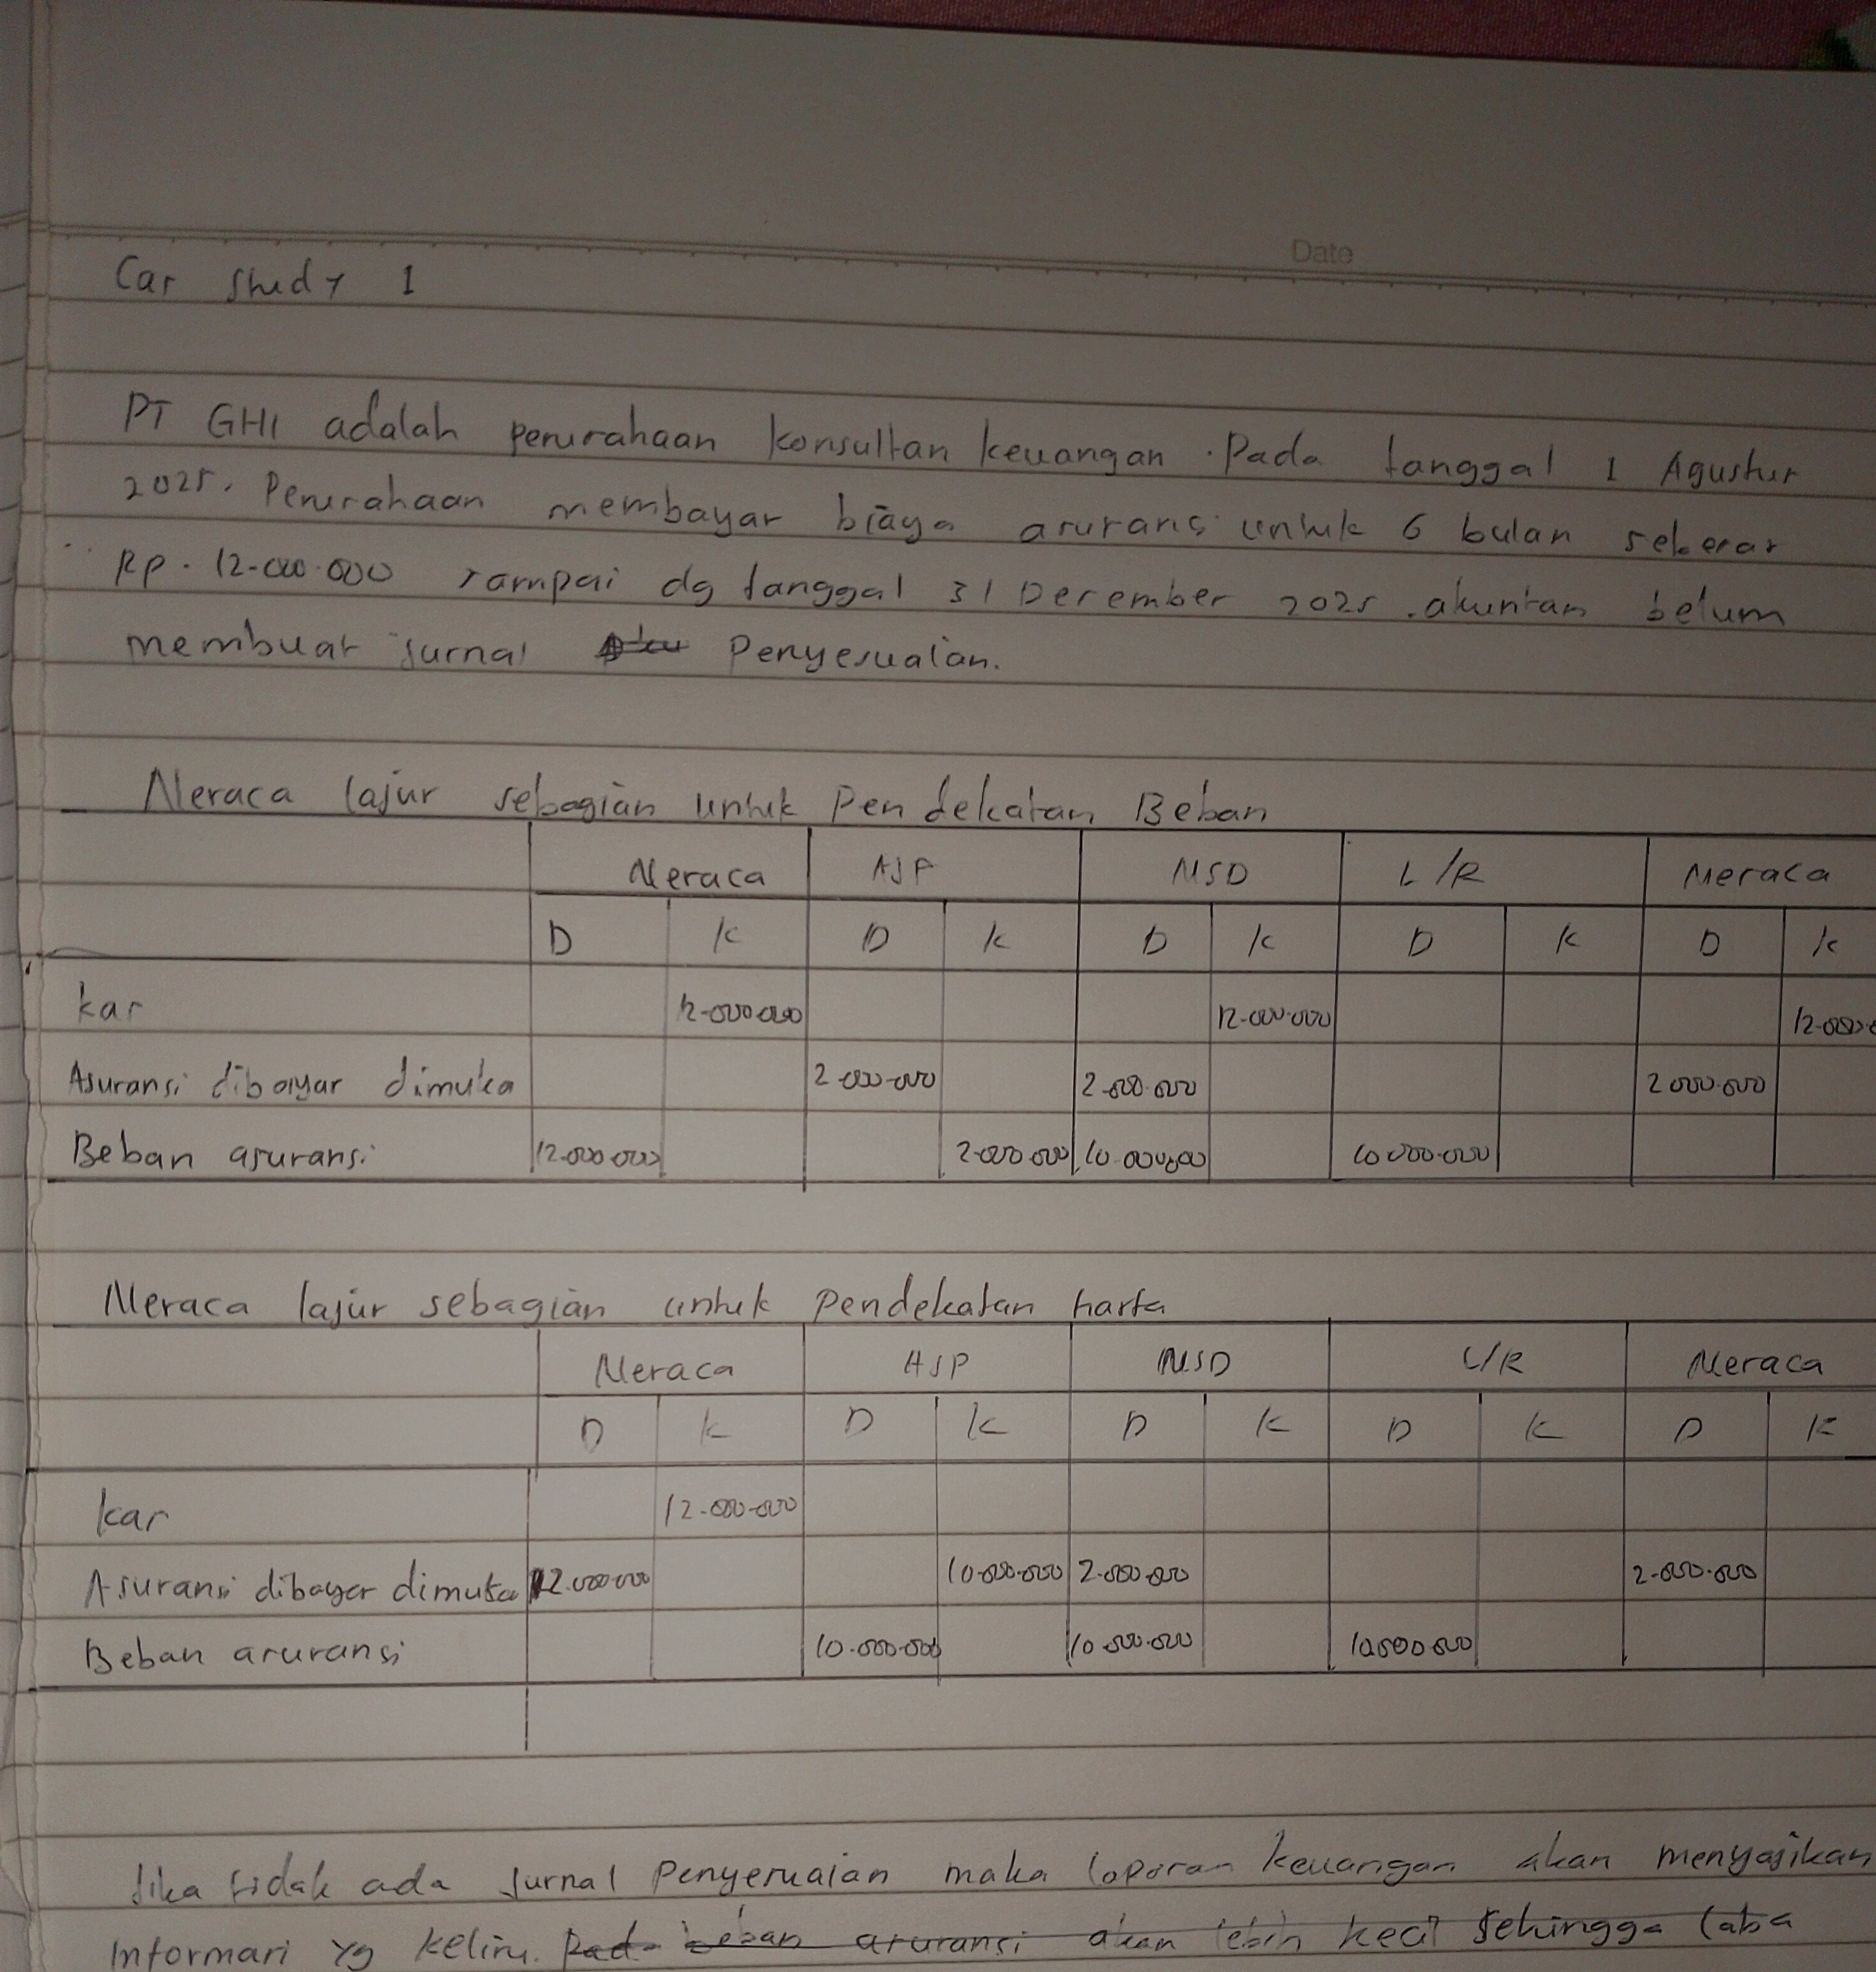 Date
Cas study 1
PT GHI adalah perusahaan konsultan keuangan. Pada tanggal 1 Agustus
2025. Perusahaan membayar biaya asuransi untuk 6 bulan sebesar
Rp. 12.000.000 sampai dg tanggal 31 Desember 2025. akuntan belum
membuat jurnal penyesuaian.
Neraca lajur sebagian untuk Pendekatan Beban
Neraca AJP NSD L/R Neraca
D K D K D K D K D K
kas 12.000.000 12.000.000
Asuransi dibayar dimuka 2.000.000 2.000.000 2.000.000
Beban asuransi 12.000.000 2.000.000 10.000.000 10.000.000
Neraca lajur sebagian untuk pendekatan harta
Neraca AJP NSD L/R Neraca
D K D K D K D K D K
kas 12.000.000
Asuransi dibayar dimuka 12.000.000 10.000.000 2.000.000 2.000.000
Beban asuransi 10.000.000 10.000.000 10.000.000
Jika tidak ada jurnal Penyesuaian maka laporan keuangan akan menyajikan
Informasi yg keliru. Pada beban asuransi akan lebih kecil sehingga laba